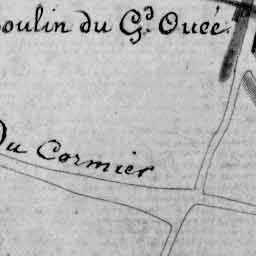 oulin du G.d Oucé.
Du Cormier